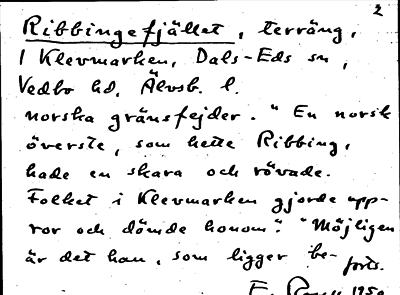 2
Ribbingefjället, terräng,
I Klevmarken, Dals-Eds sn,
Vedbo hd, Älvsb. l.
norska gränsfejder. "En norsk
överste, som hette Ribbing,
hade en skara och rövade.
Folket i Klevmarken gjorde upp-
ror och dömde honom." "Möjligen
är det han, som ligger be-
forts.
1950